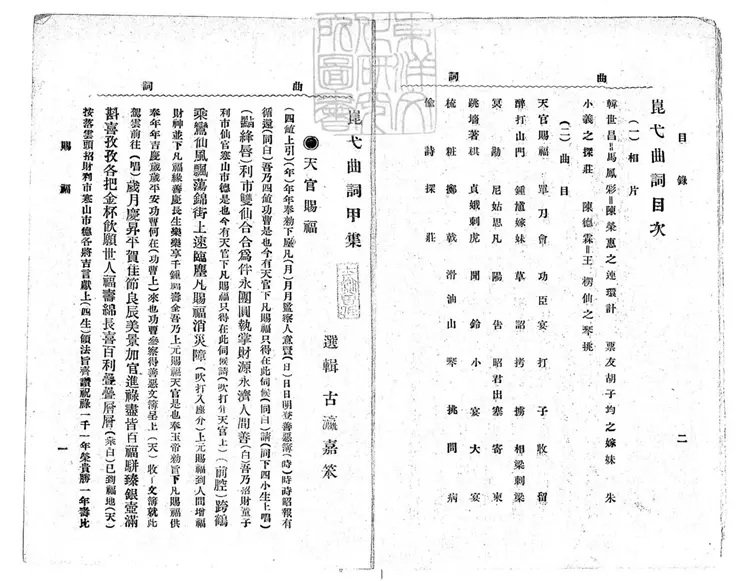 目錄
曲詞
二
崑弋曲詞目次
(一)相片
韓世昌=馬鳳彩=陳榮惠之連環計 票友胡子均之嫁妹 朱
小義之探莊 陳德霖=王楞仙之琴挑
(二)曲目
天官賜福 單刀會 功臣宴 打子 收留
醉打山門 鍾馗嫁妹 草詔 拷 擄 相梁刺梁
跳墻著棋 貞娥刺虎 聞鈴 小宴 大宴
冥勘 尼姑思凡 陽告 昭君出塞 寄柬
梳粧 擲戟 滑油山 琴挑 問病
偷詩 探莊
曲詞
崑弋曲詞甲集
選輯 古瀛嘉笨
天官賜福
(四皷上引)(年)年年奉勅下塵凡(月)月月監察人意賢(日)日日明登善惡簿(時)時時昭報有
循還(同白)吾乃四皷功曹是也今有天官下凡賜福只得在此伺候(同白)請(同下四小生上唱)
(點絳唇)利市雙仙合合爲伴永團圓執掌財源永濟人間善(白吾乃招財童子
利市仙官寒山市德是也今有天官下凡賜福只得在此伺候請(吹打介天官上)(前腔)跨鶴
乘鸞仙風飄蕩錦街上速臨塵凡賜福消災障(吹打入座介)上元賜福到人間增福
財神並下凡福緣善慶長生樂樂享千鍾 壽全吾乃上元賜福天官是也奉玉帝勅旨下凡賜福供
奉年年吉慶歲歲平安功曹何在(功曹上)來也功曹參察得善惡文簿呈上(天)收 文簿就此
駕雲前往(唱)歲月慶昇平賀佳節良辰美景加官進祿盡皆百福駢臻銀壺滿
斟喜孜孜各把金杯飲願世人福壽綿長喜百利疊疊層層(衆白)已到福地(天)
按落雲頭招財利市寒山市德各將吉言獻上(四生)領法旨齊讚祝祿一千一年榮貴勝一年壽比
賜福
一